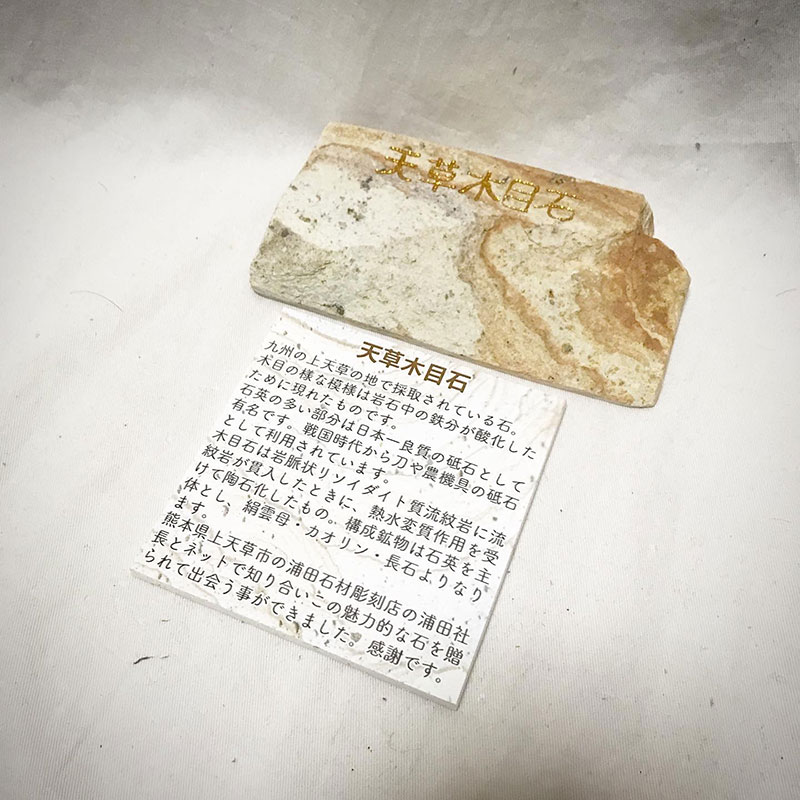 天草木目石
天草木目石
九州の上天草の地で採取されている石。
木目の様な模様は岩石中の鉄分が酸化した
ために現れたものです。
石英の多い部分は日本一良質の砥石として
有名です。戦国時代から刀や農機具の砥石
として利用されています。
木目石は岩脈状リソイダイト質流紋岩に流
紋岩が貫入したときに、熱水変質作用を受
けて陶石化したもの。構成鉱物は石英を主
体とし、絹雲母・カオリン・長石よりなり
ます。
熊本県上天草市の浦田石材彫刻店の浦田社
長とネットで知り合いこの魅力的な石を贈
られて出会う事ができました。感謝です。